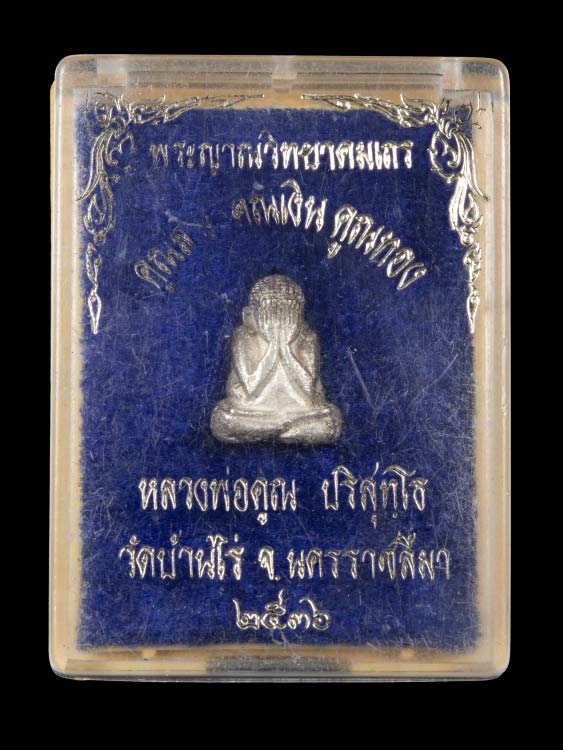 พระญาณวิทยาคมเถร
คูณเงิน คูณทอง
หลวงพ่อคูณ ปริสุทฺโธ
วัดบ้านไร่ จ.นครราชสีมา
๒๕๓๖